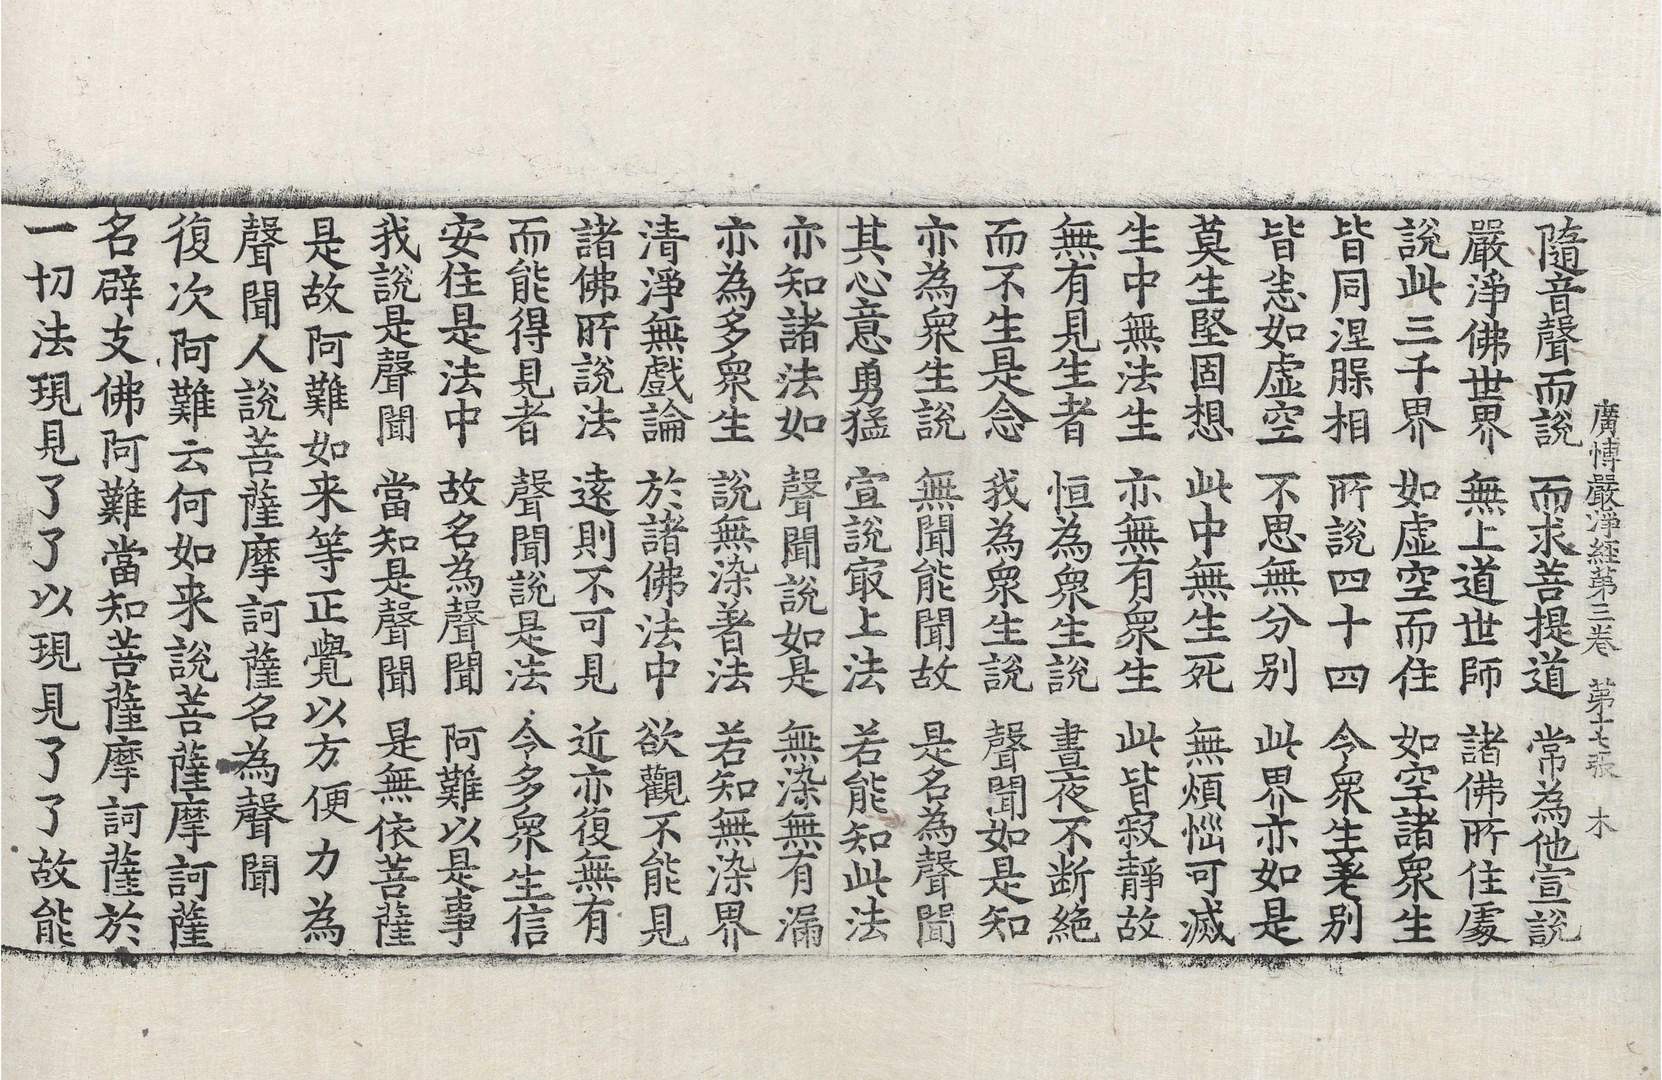 廣博嚴淨經第三卷　第十七張　木
隨音聲而說　而求菩提道　常為他宣說
嚴淨佛世界　無上道世師　諸佛所住處
說此三千界　如虛空而住　如空諸眾生
皆同涅槃相　所說四十四　令眾生差別
皆悉如虛空　不思無分別　此界亦如是
莫生堅固想　此中無生死　無煩惱可滅
生中無法生　亦無有眾生　此皆寂靜故
無有見生者　恒為眾生說　晝夜不斷絕
而不生是念　我為眾生說　聲聞如是知
亦為眾生說　無聞能聞故　是名為聲聞
其心意勇猛　宣說冣上法　若能知此法
亦知諸法如　聲聞說如是　無染無有漏
亦為多眾生　說無染著法　若知無染界
清淨無戲論　於諸佛法中　欲觀不能見
諸佛所說法　遠則不可見　近亦復無有
而能得見者　聲聞說是法　令多眾生信
安住是法中　故名為聲聞　阿難以是事
我說是聲聞　當知是聲聞　是無依菩薩
是故阿難如来等正覺以方便力為
聲聞人說菩薩摩訶薩名為聲聞
復次阿難云何如来說菩薩摩訶薩
名辟支佛阿難當知菩薩摩訶薩於
一切法現見了了以現見了了故能